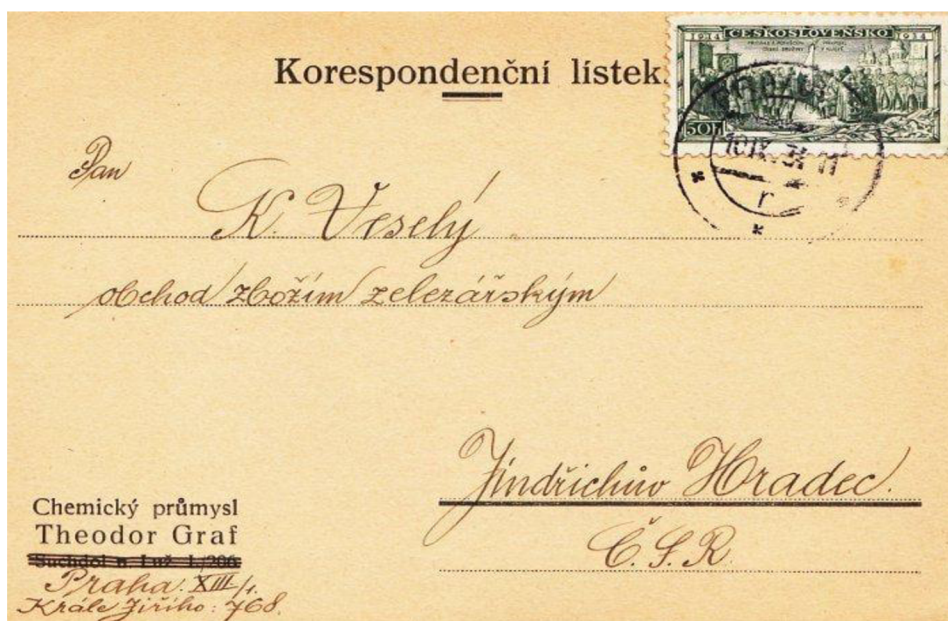 Korespondenční lístek.
1914 ČESKOSLOVENSKO 1934
50h
10.IX.34-11
r
Pan
K. Veselý
obchod zbožím železářským
Jindřichův Hradec.
Č.S.R.
Chemický průmysl
Theodor Graf
Suchdol n Luž. I./206
Praha: XIII/1.
Krále Jiřího: 768.